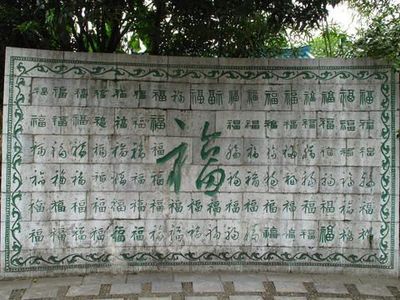 福福福福福福福福福福福福福福福福福福
福福福福福福福福福福福福福福福
福
福福福福福福福福福福福福福福福
福福福福福福福福福福福福福福福
福福福福福福福福福福福福福福福福福福
福福福福福福福福福福福福福福福福福福